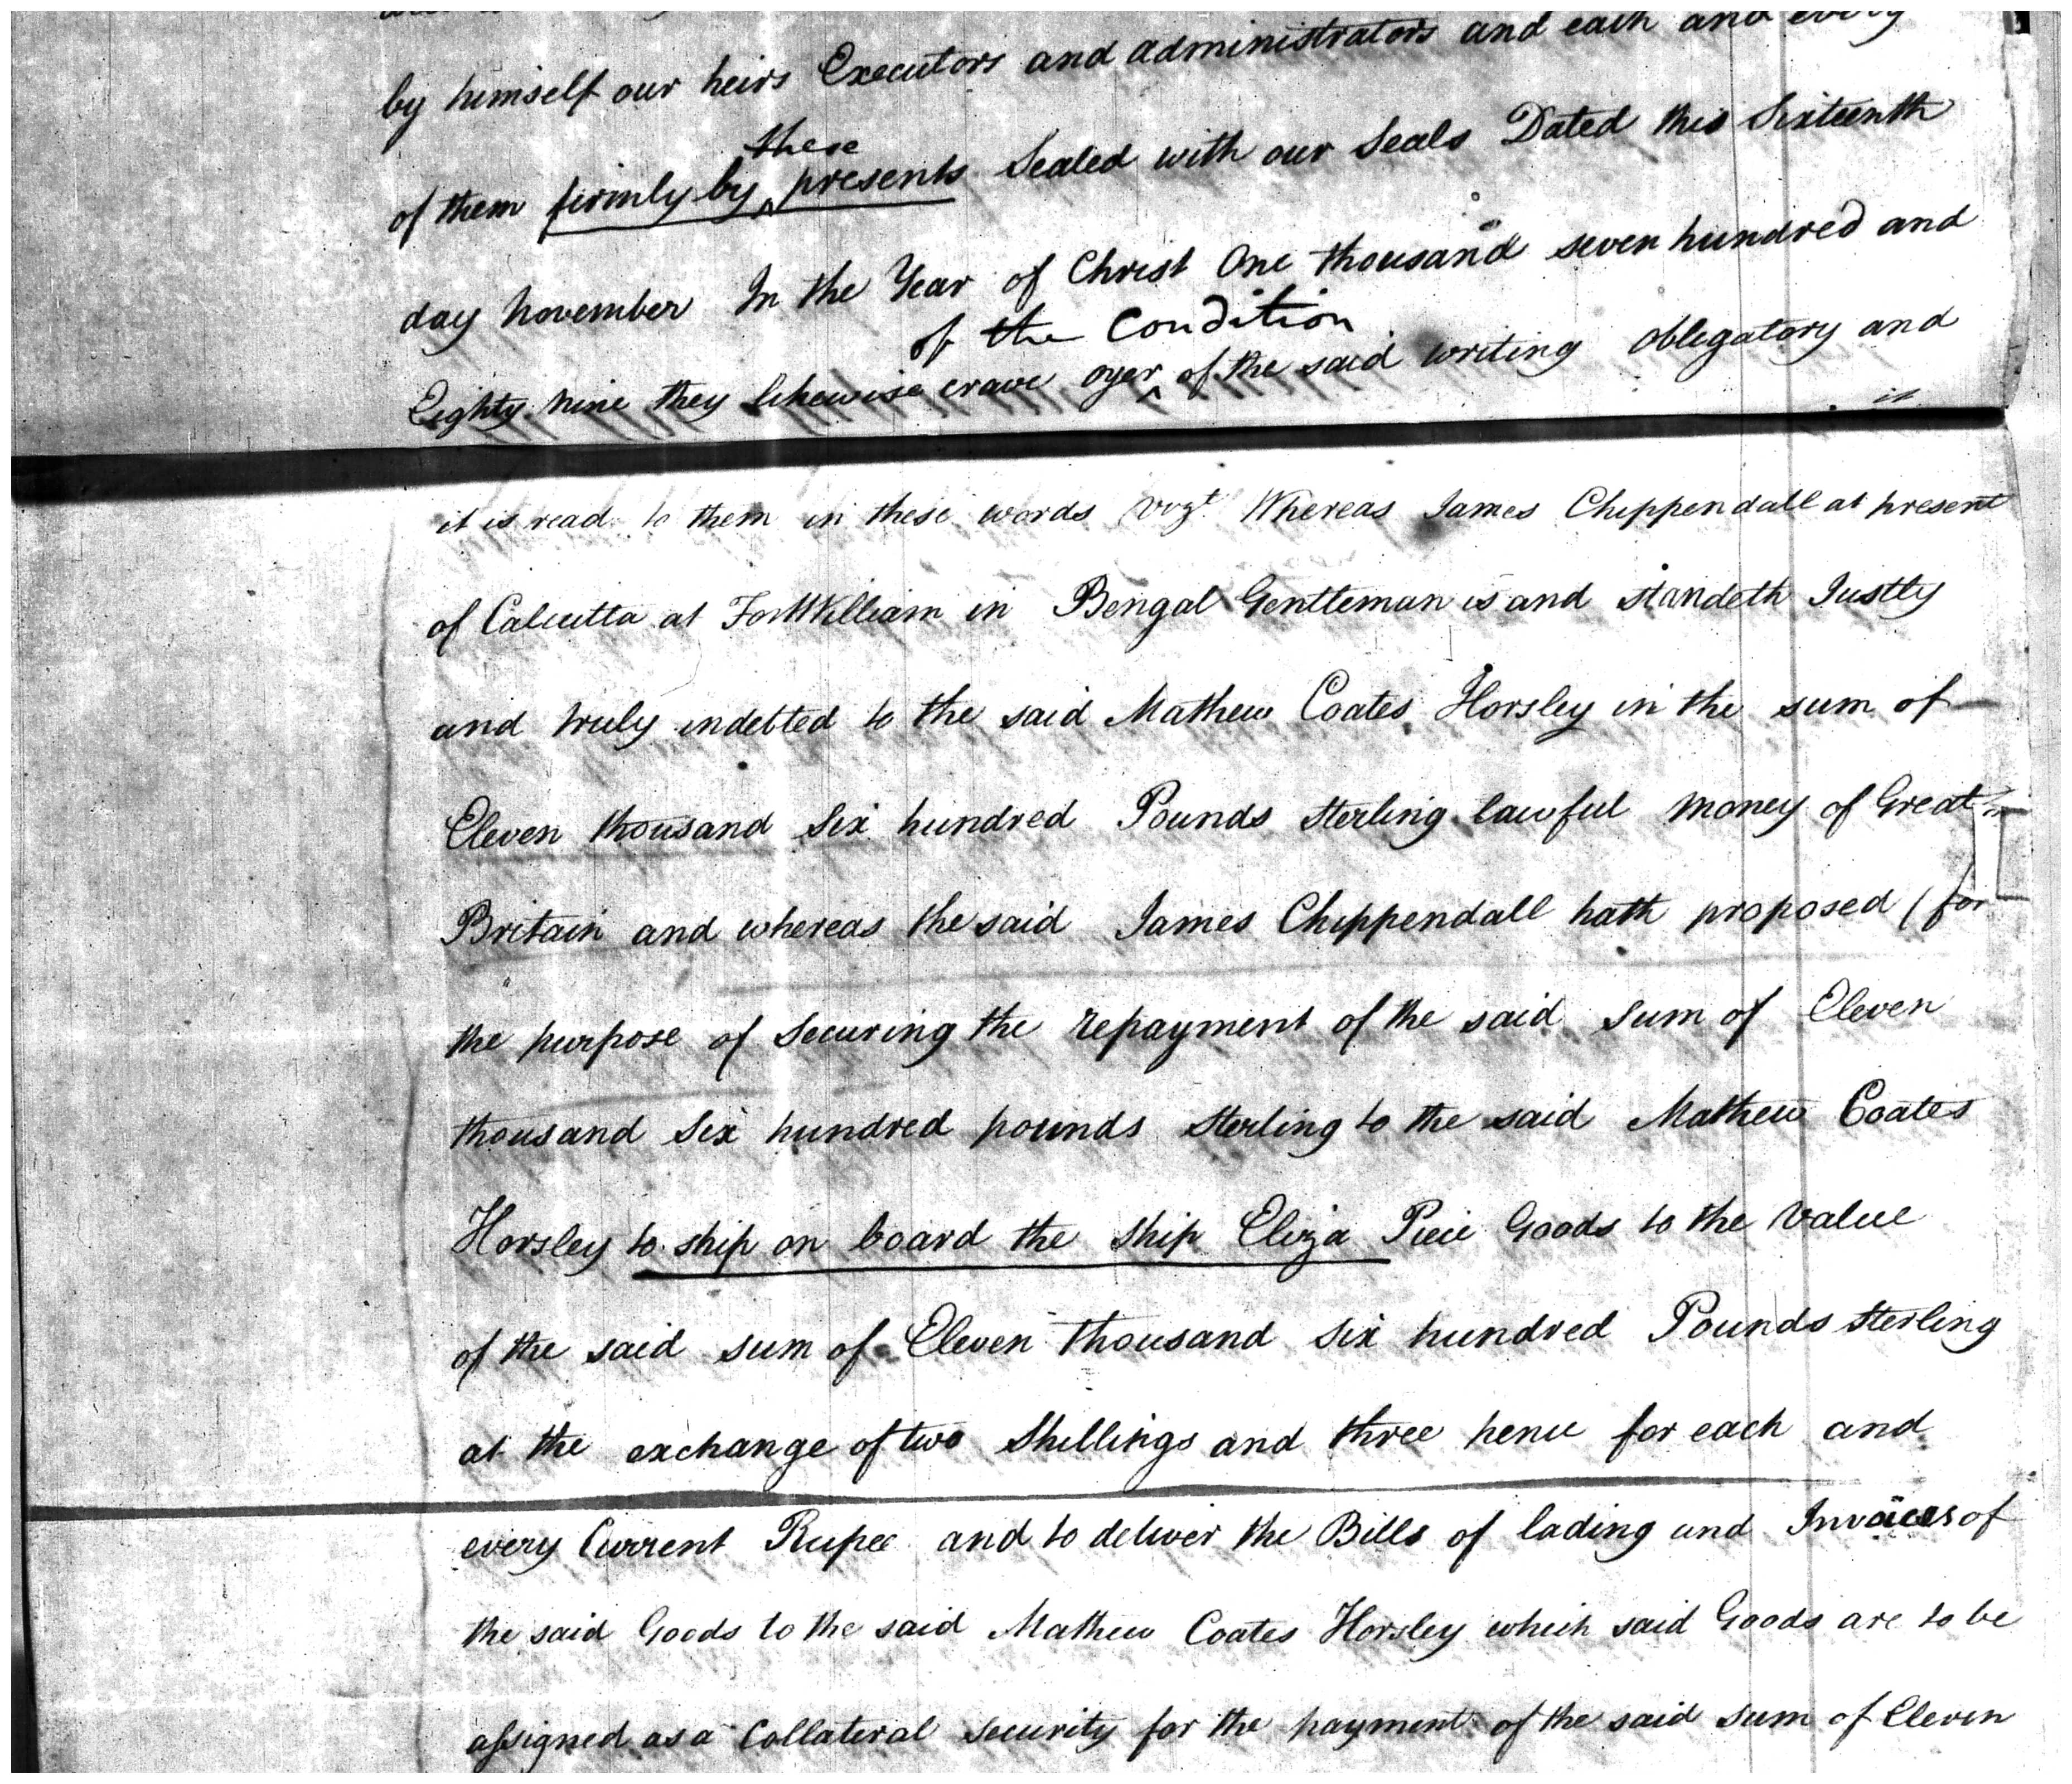 by himself our heirs Executors and administrators and each and every
of them firmly by these presents Sealed with our Seals Dated this Sixteenth
day November In the Year of Christ One thousand seven hundred and
Eighty nine they likewise crave oyer of the Condition of the said writing obligatory and
it
it is read to them in these words vizt Whereas James Chippendall at present
of Calcutta at Fort William in Bengal Gentleman is and standeth Justly
and truly indebted to the said Mathew Coates Horsley in the sum of
Eleven thousand six hundred Pounds sterling lawful money of Great
Britain and whereas the said James Chippendall hath proposed (for
the purpose of securing the repayment of the said sum of Eleven
thousand six hundred pounds sterling to the said Mathew Coates
Horsley to ship on board the ship Eliza Piece Goods to the value
of the said sum of Eleven thousand six hundred Pounds sterling
at the exchange of two Shillings and three pence for each and
every Current Rupee and to deliver the Bills of lading and Invoices of
the said Goods to the said Mathew Coates Horsley which said Goods are to be
assigned as a Collateral Security for the payment of the said sum of Eleven